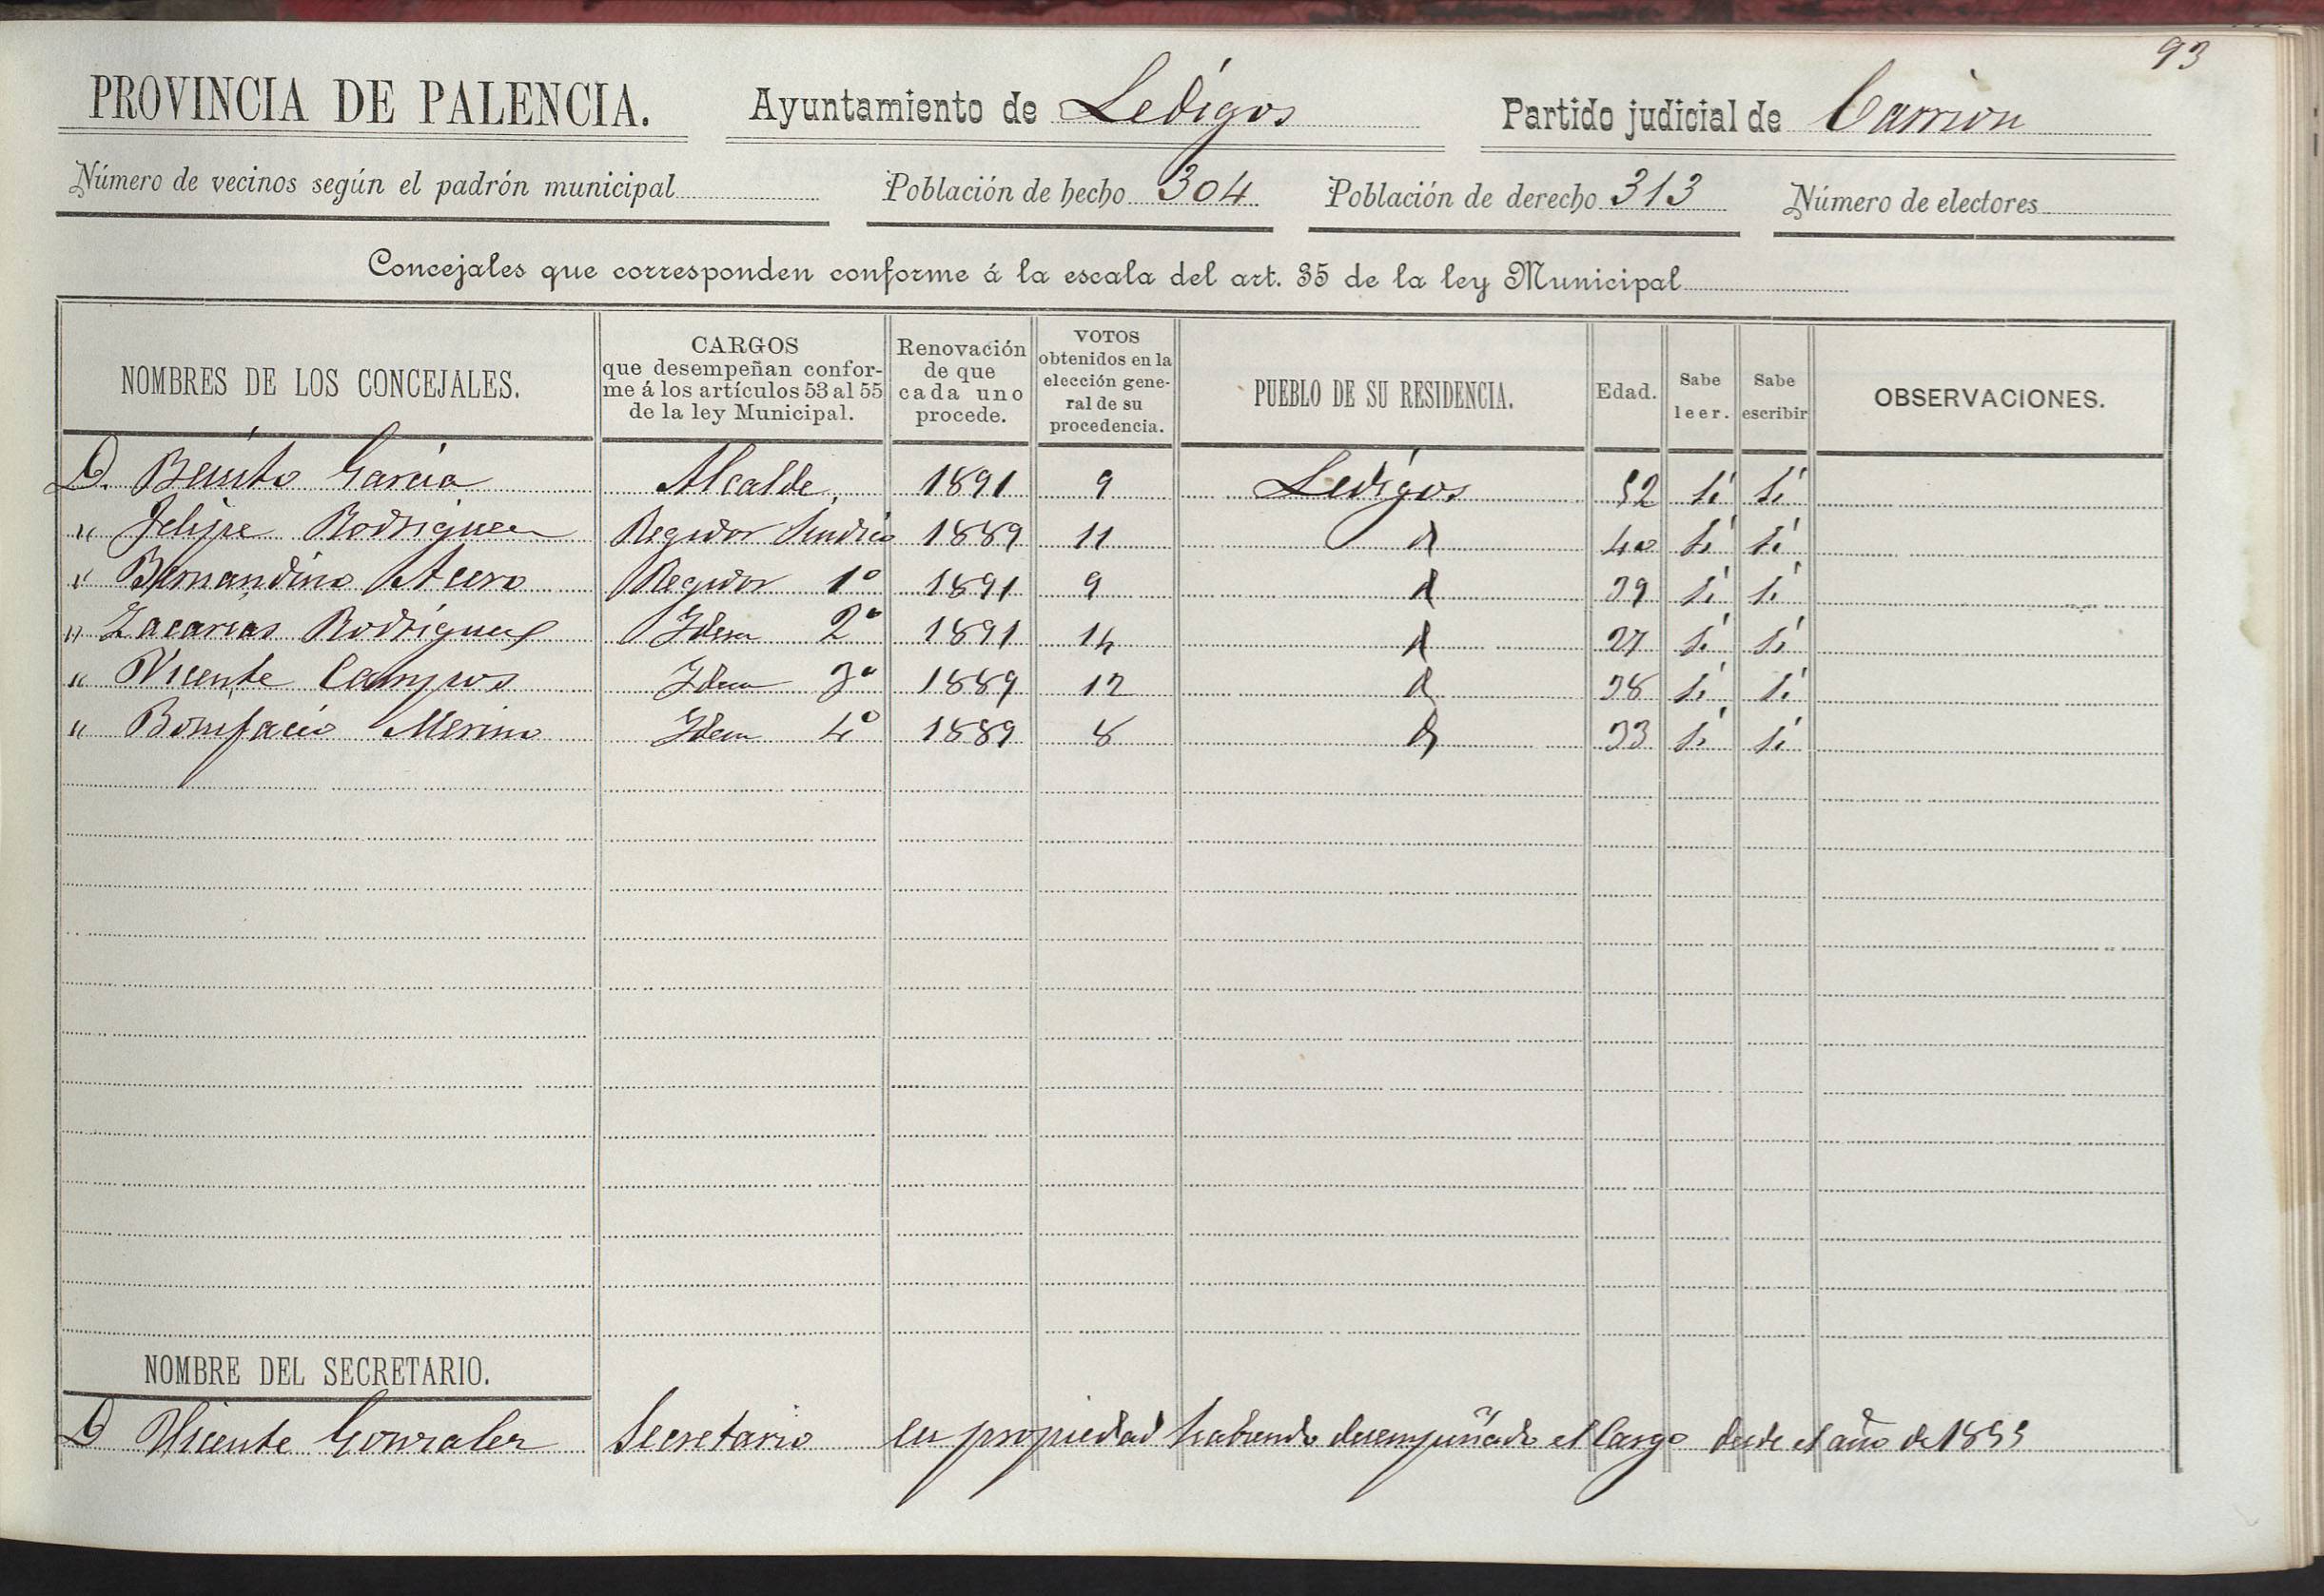 93
PROVINCIA DE PALENCIA. Ayuntamiento de Ledigos Partido judicial de Carrion
Número de vecinos según el padrón municipal Población de hecho 304 Población de derecho 313 Número de electores
Concejales que corresponden conforme á la escala del art. 35 de la ley Municipal
NOMBRES DE LOS CONCEJALES. CARGOS que desempeñan confor-me á los artículos 53 al 55 de la ley Municipal. Renovación de que cada uno procede. VOTOS obtenidos en la elección gene-ral de su procedencia. PUEBLO DE SU RESIDENCIA. Edad. Sabe leer. Sabe escribir OBSERVACIONES.
D. Benito Garcia Alcalde 1891 9 Ledigos 52 Sí Sí
" Felipe Rodriguez Regidor Sindico 1889 11 40 Sí Sí
" Bernandino Acero Regidor 1º 1891 9 39 Sí Sí
" Zacarias Rodriguez Idem 2º 1891 14 27 Sí Sí
" Vicente Campos Idem 3º 1889 12 38 Sí Sí
" Bonifacio Merino Idem 4º 1889 8 33 Sí Sí
NOMBRE DEL SECRETARIO.
D Vicente Gonzalez Secretario en propiedad habiendo desempeñado el Cargo desde el año de